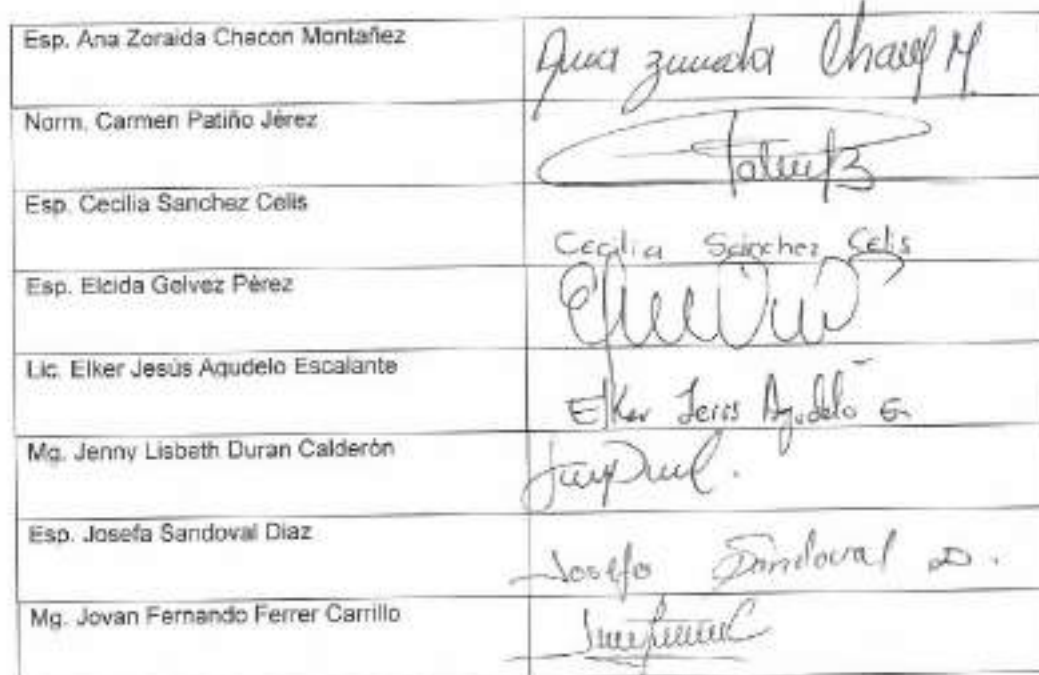 Esp. Ana Zoraida Chacon Montañez
Chacon M.
Norm. Carmen Patiño Jérez
Esp. Cecilia Sanchez Celis
Cecilia Sánchez Celis
Esp. Elcida Gelvez Pérez
Lic. Elker Jesús Agudelo Escalante
Elker Jesús Agudelo E.
Mg. Jenny Lisbeth Duran Calderón
Esp. Josefa Sandoval Diaz
Josefa Sandoval D.
Mg. Jovan Fernando Ferrer Carrillo